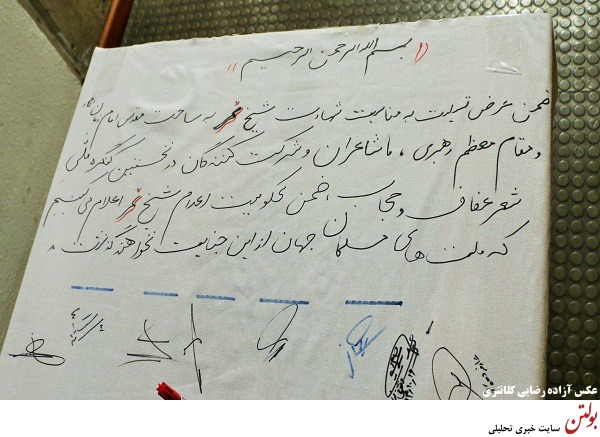 بسم الله الرحمن الرحیم
ضمن عرض تسلیت به مناسبت شهادت شیخ نمر به ساحت مقدس امام زمان
و مقام معظم رهبری، ما شاعران و شرکت کنندگان در نخستین کنگره ملی
شعر عفاف و حجاب، ضمن محکومیت اعدام شیخ نمر اعلام می کنیم
که ملت های مسلمان جهان از این جنایت نخواهند گذشت.
عکس آزاده رضایی کلانتری
بولتن سایت خبری تحلیلی